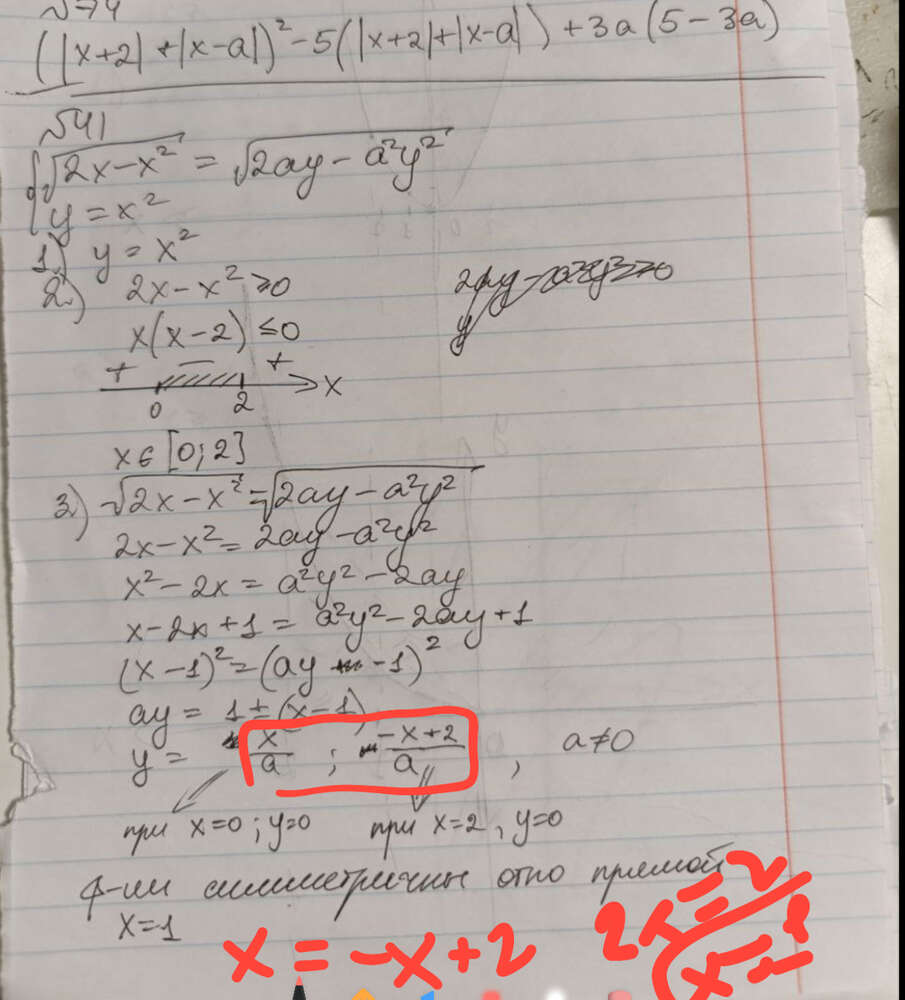 √74
(|x+2|+|x-a|)²-5(|x+2|+|x-a|)+3a(5-3a)
√41
{√2x-x² = √2ay-a²y²
y = x²
1) y = x²
2) 2x-x²≥0
x(x-2)≤0
+ - + x
0 2
x∈[0;2]
3) √2x-x² = √2ay-a²y²
2x-x² = 2ay-a²y²
x²-2x = a²y²-2ay
x-2x+1 = a²y²-2ay+1
(x-1)² = (ay-1)²
ay = 1±(x-1)
y = x/a ; -x+2/a , a≠0
при x=0; y=0 при x=2, y=0
ф-ии симметричны отно прямой
x=1
x = -x+2 2x=2
x=1